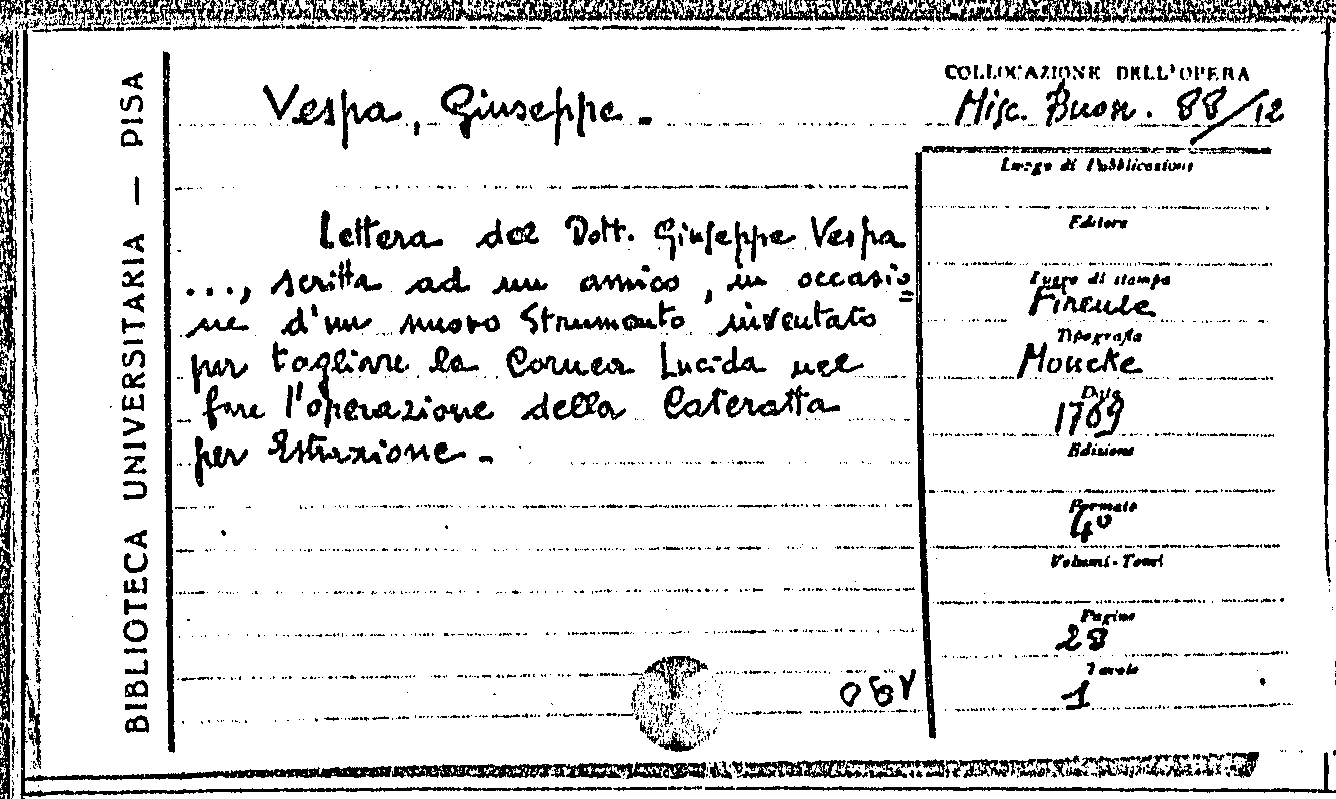 BIBLIOTECA UNIVERSITARIA — PISA
Vespa, Giuseppe.
Lettera del Dott. Giuseppe Vespa
..., scritta ad un amico, in occasio=
ne d'un nuovo Strumento inventato
per tagliare la Cornea Lucida nel
fare l'operazione della Cateratta
per Estrazione.
COLLOCAZIONE DELL'OPERA
Misc. Buon. 88/12
Luogo di Pubblicazione
Editore
Luogo di stampa
Firenze
Tipografia
Moucke
Data
1769
Edizione
Formato
4º
Volumi - Tomi
Pagine
28
Tavole
1